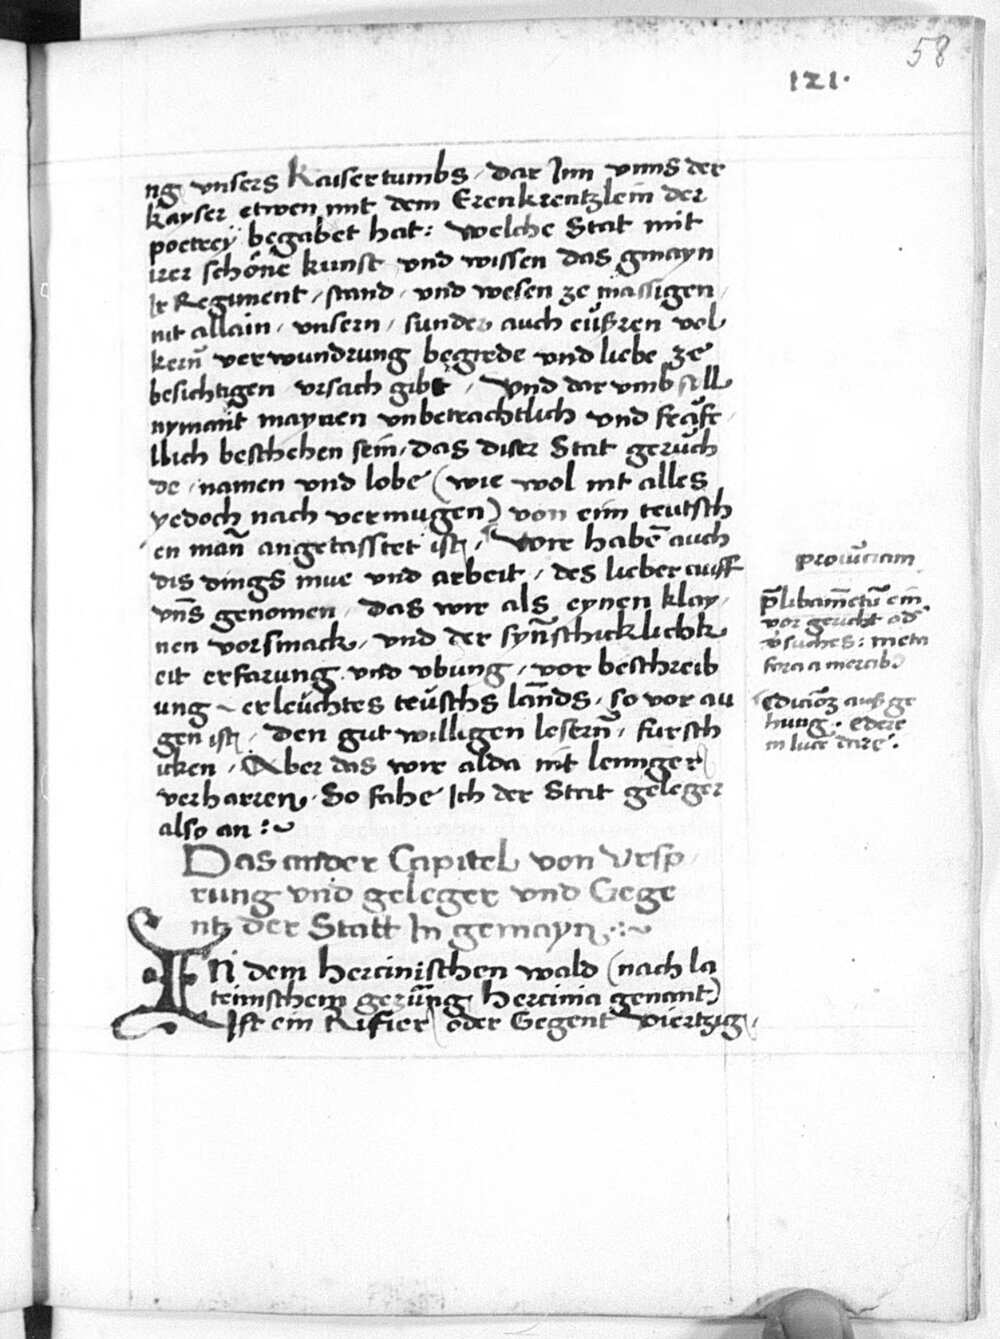 58
121.
ng vnsers Kaisertumbs, dar Inn vnns der
kayser etwen mit dem Erenkrentzlein der
poetrey begabet hat: welche Stat mit
irer schöne kunst vnd wissen das gmayn
ir Regiment, stand, vnd wesen ze massigen,
nit allain, vnsern, sunder auch eüßren vol
kern̄ verwundrung begirde vnd liebe ze
besichtigen vrsach gibt, Vnd dar vmb soll
nymant maynen vnbetrachtlich vnd fräfe,
llich beschehen sein, das diser Stat gerüch
de, namen vnd lobe (wie wol nit alles
yedoch nach vermugen) von eim teutsch
en man̄ angetasstet ist, Wire habē auch
dis dings mue vnd arbeit, des lieber auff
vn̄s genomen, das wir als eynen klay,
nen vorsmack, vnd der syn̄schicklichk
eit erfarung vnd vbung, vor beschreib
ung erleüchtes teüschs lan̄ds, so vor au
gen ist, den gut willigen lesern̄, fursch
icken, Aber das wir alda nit lenniger
verharren, So fahe Ich der Stat geleger
also an :~
Das ander Capitel von Vrsp,
rung vnd geleger vnd Gege
ntz der Statt In gemayn.:~
IN dem hercinischen wald (nach la
teinischem gerün̄g hercinia genant)
Ist ein Rifier oder Gegent viertzig,
p̄libamētū ein
vor gericht od̄
v̄suches: meta
fora a mercib9
Edicioz auß ge
hung. Edere
in luce dare.